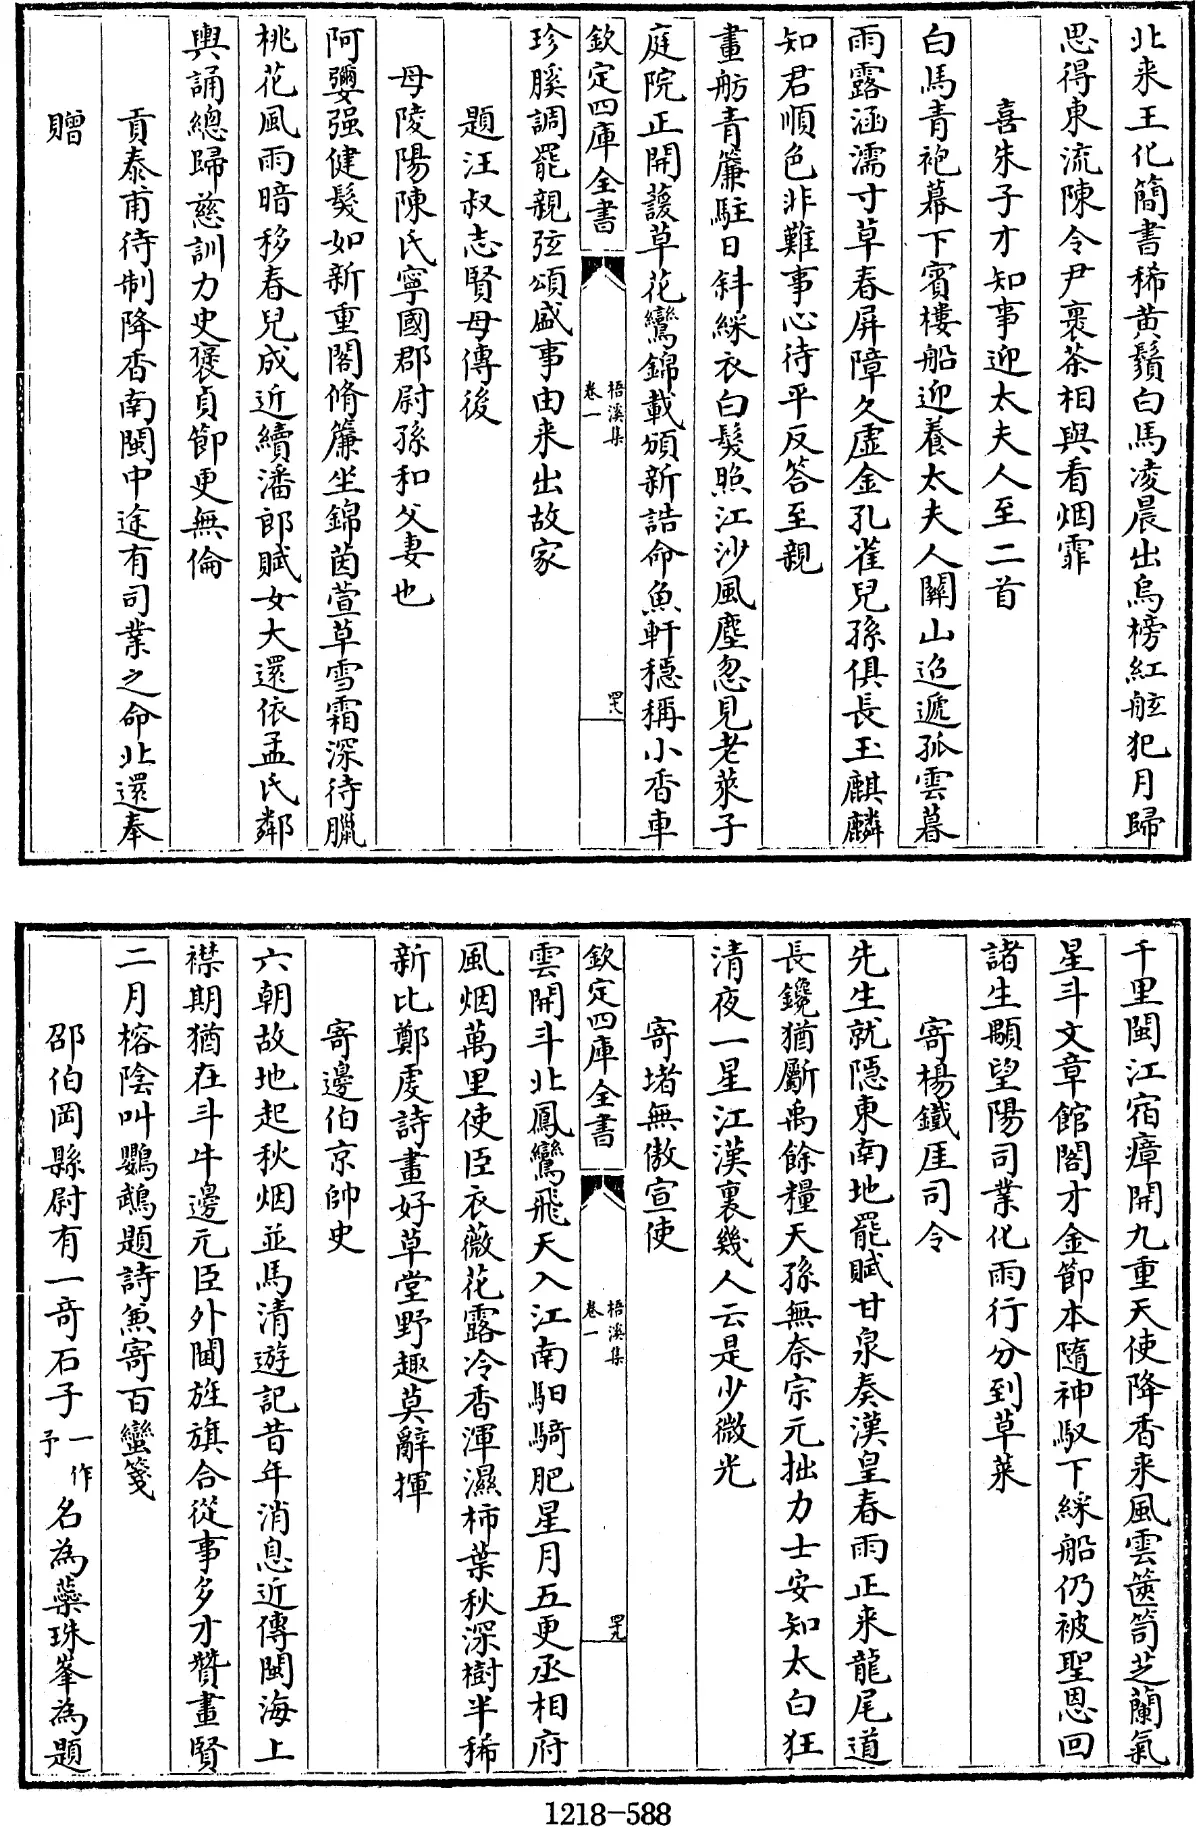 北来王化簡書稀黄鬚白馬凌晨出烏榜紅舷犯月歸
思得東流陳令尹裹茶相與看烟霏
喜朱子才知事迎太夫人至二首
白馬青袍幕下賓樓船迎養太夫人關山迢遞孤雲暮
雨露涵濡寸草春屏障久虚金孔雀兒孫俱長玉麒麟
知君順色非難事心待平反答至親
畫舫青簾駐日斜綵衣白髮照江沙風塵忽見老萊子
庭院正開諼草花鸞錦載頒新誥命魚軒穩稱小香車
欽定四庫全書
梧溪集
卷一
罕八
珍膎調罷親弦頌盛事由来出故家
題汪叔志賢母傳後
母陵陽陳氏寧國郡尉孫和父妻也
阿㜷强健髮如新重閣脩簾坐錦茵萱草雪霜深待臘
桃花風雨暗移春兒成近續潘郎賦女大還依孟氏鄰
輿誦總歸慈訓力史褒貞節更無倫
貢泰甫待制降香南閩中途有司業之命北還奉
贈
千里閩江宿瘴開九重天使降香来風雲篋笥芝蘭氣
星斗文章館閣才金節本隨神馭下綵船仍被聖恩回
諸生顒望陽司業化雨行分到草萊
寄楊鐵厓司令
先生就隱東南地罷賦甘泉奏漢皇春雨正来龍尾道
長鑱猶斸禹餘糧天孫無奈宗元拙力士安知太白狂
清夜一星江漢裏幾人云是少微光
寄堵無傲宣使
欽定四庫全書
梧溪集
卷一
罕九
雲開斗北鳳鸞飛天入江南馹騎肥星月五更丞相府
風烟萬里使臣衣薇花露冷香渾濕柿葉秋深樹半稀
新比鄭虔詩畫好草堂野趣莫辭揮
寄邊伯京帥史
六朝故地起秋烟並馬清遊記昔年消息近傳閩海上
襟期猶在斗牛邊元臣外閫旌旗合從事多才贊畫賢
二月榕陰叫鸚鵡題詩煎寄百蠻箋
邵伯岡縣尉有一奇石子一作予名為蘂珠峯為題
1218-588